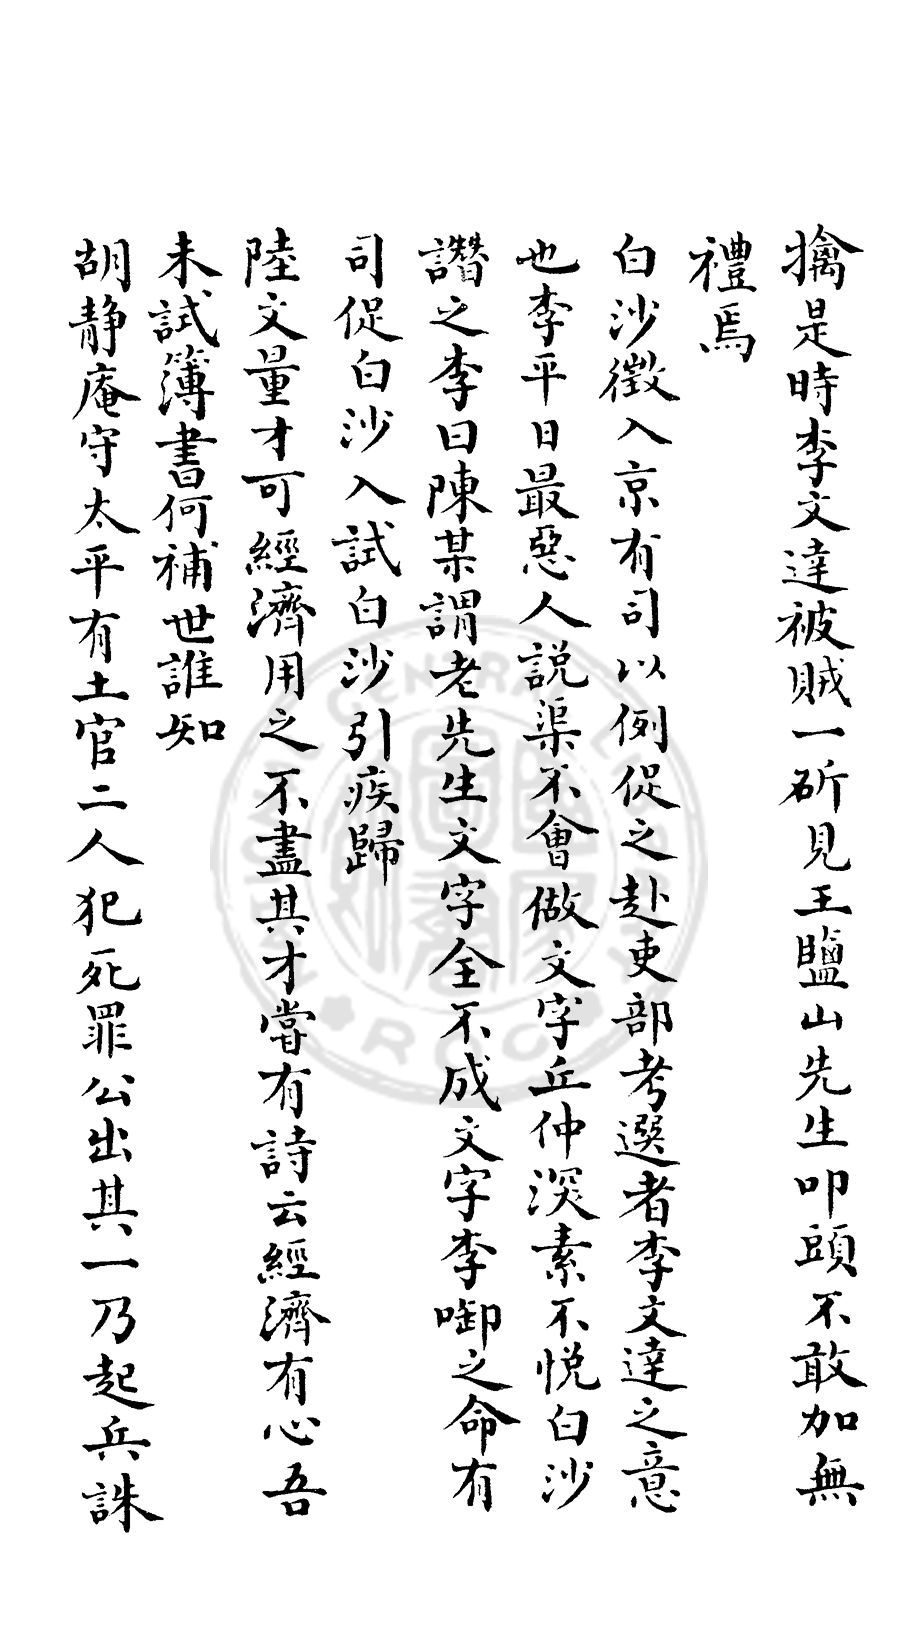 擒是時李文達被賊一斫見王鹽山先生叩頭不敢加無
禮焉
白沙徵入京有司以例促之赴吏部考選者李文達之意
也李平日最惡人説渠不會做文字丘仲深素不悅白沙
譖之李曰陳某謂老先生文字全不成文字李啣之命有
司促白沙入試白沙引疾歸
陸文量才可經濟用之不盡其才嘗有詩云經濟有心吾
未試簿書何補世誰知
胡静庵守太平有土官二人犯死罪公出其一乃起兵誅